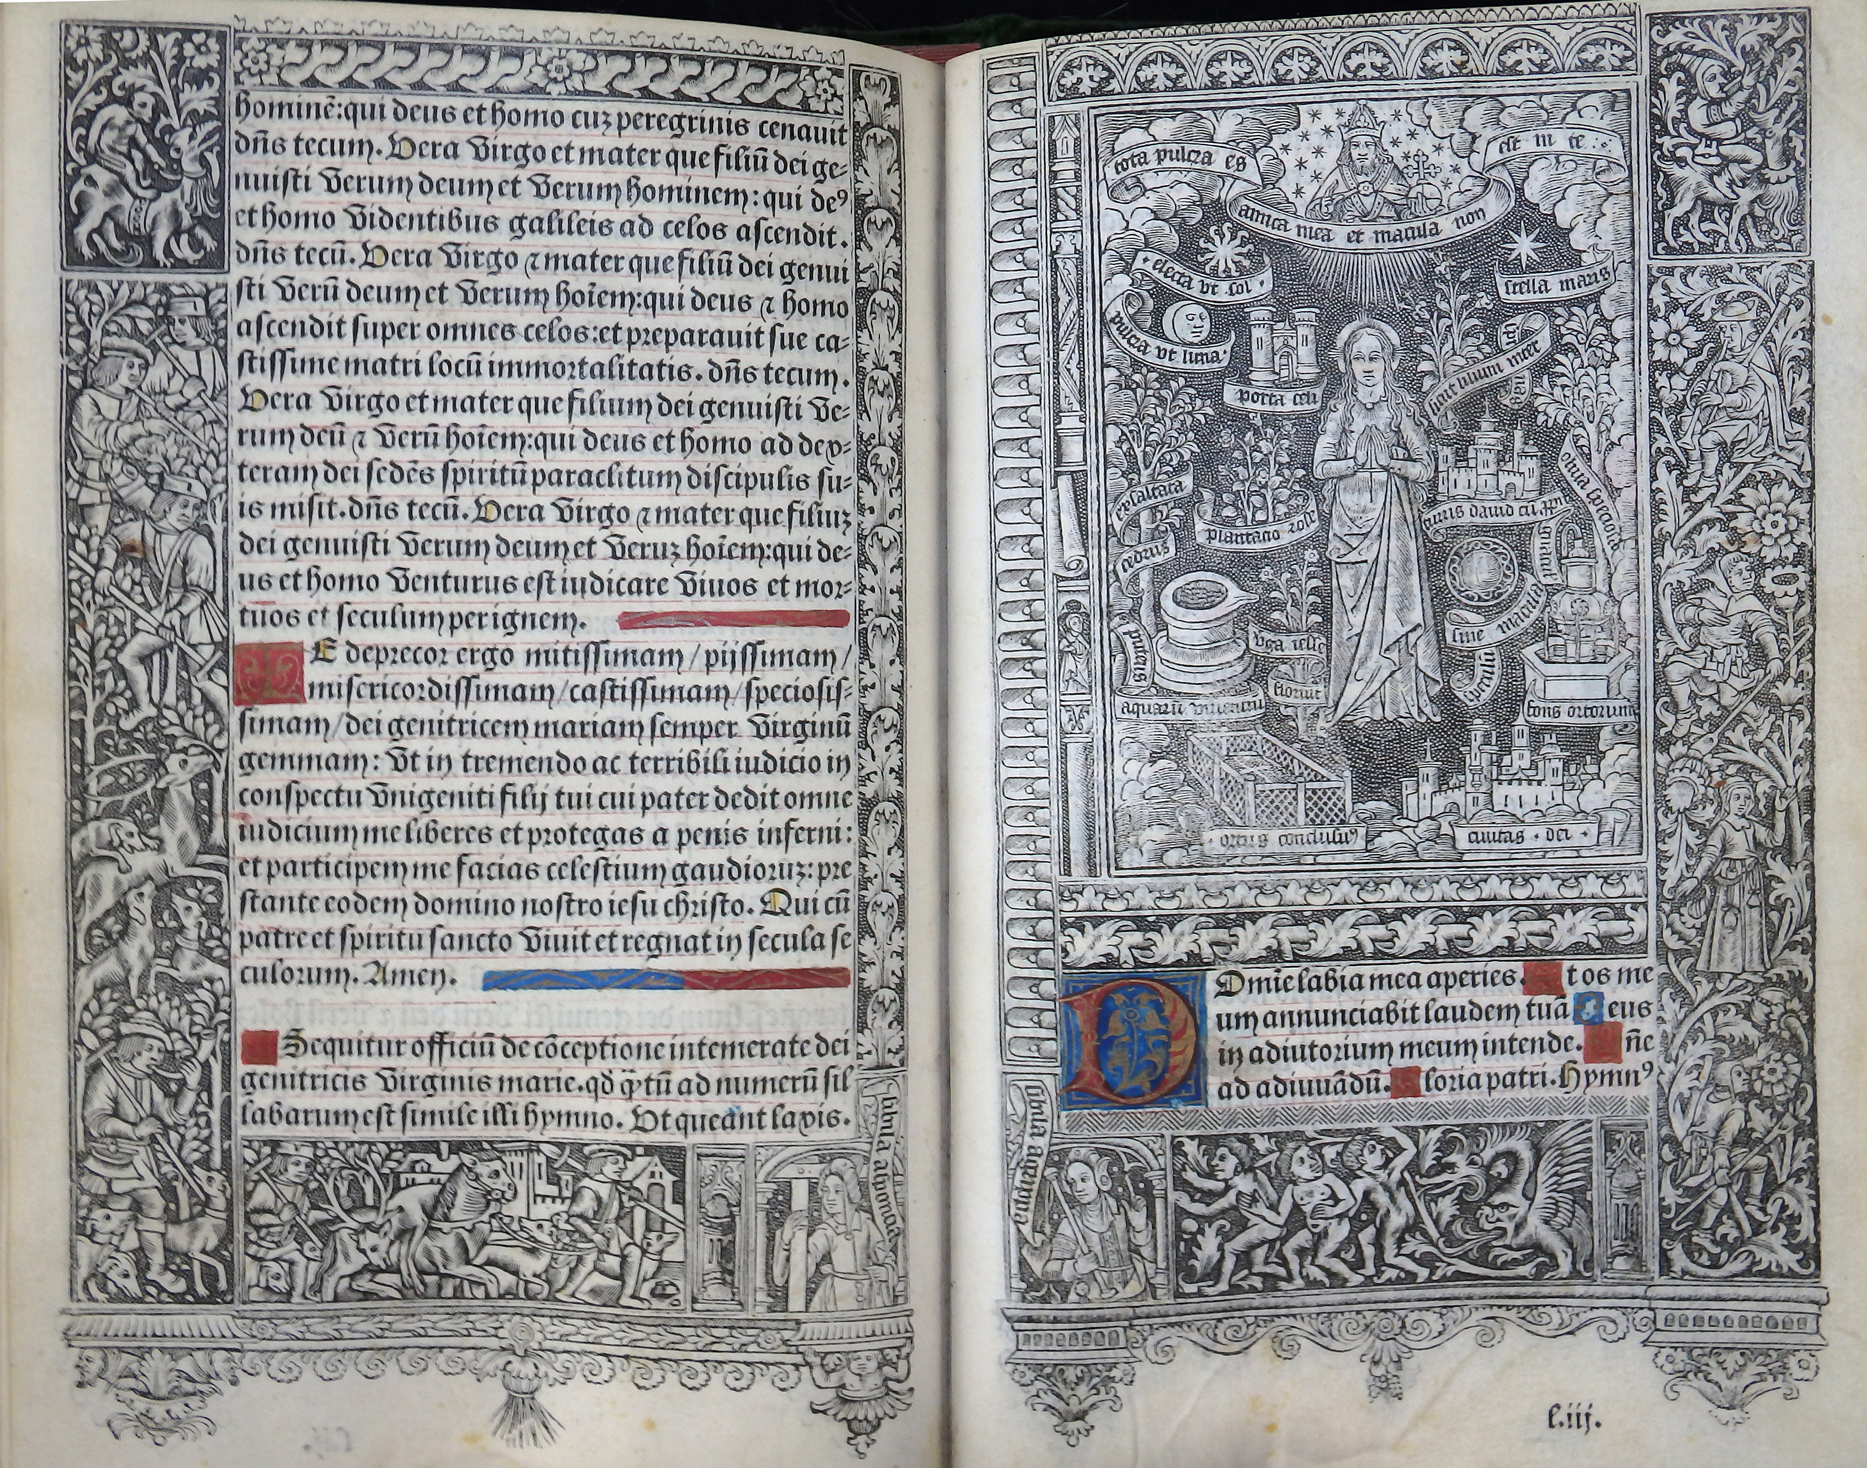 hominē:qui deus et homo cuȝ peregrinis cenauit
dn̄s tecum. Vera Virgo et mater que filiū dei ge-
nuisti Verum deum et Verum hominem: qui deꝰ
et homo Videntibus galileis ad celos ascendit.
dn̄s tecū. Vera Virgo ⁊ mater que filiū dei genui
sti Verū deum et Verum hoīem:qui deus ⁊ homo
ascendit super omnes celos:et preparauit sue ca-
stissime matri locū immortalitatis. dn̄s tecum.
Vera Virgo et mater que filium dei genuisti Ve-
rum deū ⁊ Verū hoīem:qui deus et homo ad dex-
teram dei sedēs spiritū paraclitum discipulis su-
is misit. dn̄s tecū. Vera Virgo ⁊ mater que filiuȝ
dei genuisti Verum deum et Veruȝ hoīem:qui de-
us et homo Venturus est iudicare Viuos et mor-
tuos et seculum per ignem.
E deprecor ergo mitissimam / pijssimam /
misericordissimam / castissimam / speciosis-
simam / dei genitricem mariam semper Virginū
gemmam: Vt in tremendo ac terribili iudicio in
conspectu Vnigeniti filij tui cui pater dedit omne
iudicium me liberes et protegas a penis inferni:
et participem me facias celestium gaudioruȝ: pre
stante eodem domino nostro iesu christo. Qui cū
patre et spiritu sancto Viuit et regnat in secula se
culorum. Amen.
Sequitur officiū de cōceptione intemerate dei
genitricis Virginis marie. qd̄ q̄tū ad numerū sil
labarum est simile illi hymno. Vt queant laxis.
tota pulcra es
amica mea et macula non
est in te
electa vt sol
stella maris
pulcra vt luna
porta celi
sicut lilium inter
exaltata
cedrus
plantatio rose
turris dauid
oliua speciosa
speculū
sine macula
puteus
aquarū viuentiū
virga iesse
floruit
fons ortorum
ortus conclususꝰ
ciuitas dei
D Omīe labia mea aperies. t os me
um annunciabit laudem tuā eus
in adiutorium meum intende. ñe
ad adiuuādū. loria patri. Hymnꝰ
l.iij.